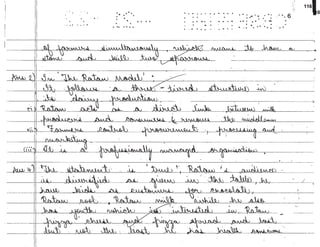 6
116
of farmers simultaneously which means to have a
stone and kill two sparrows.
Ans 2) In 'The Ratan Model' :
It follows a three-tiered structure in
its dairy production.
(i) Ratan acts as a direct link between milk
producers and consumers & removes the middlemen
(ii) Farmers control procurement, processing and
marketing.
(iii) It is a professionally managed organisation.
Ans 4) The statement is 'true', Ratan's audience
is diversified as given in the table, he
have kids as customers for chocolate,
Ratan milk while he also
has youth which is interested in Ratan
pizza cheese and pizza spread and last
but not the least he has health conscious